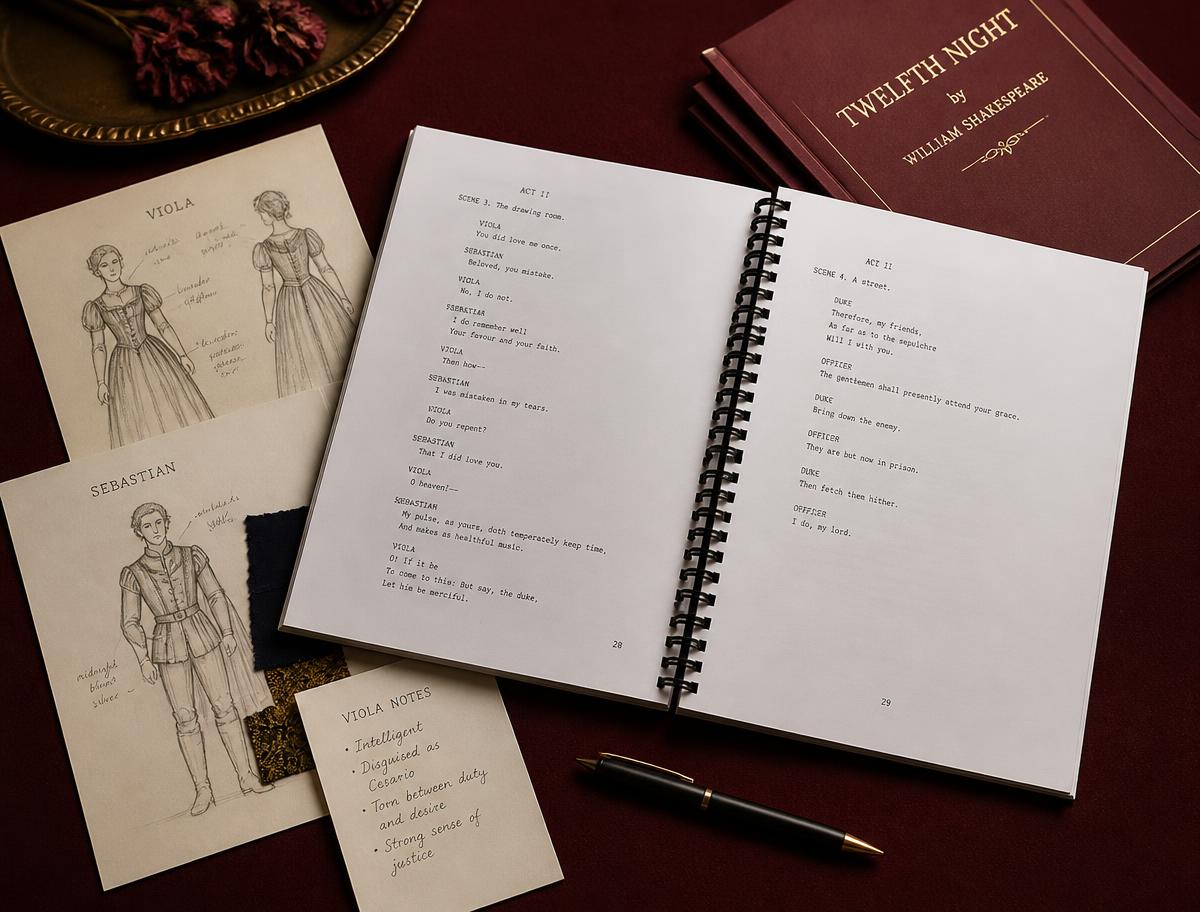 TWELFTH NIGHT
by
WILLIAM SHAKESPEARE
VIOLA
SEBASTIAN
VIOLA NOTES
• Intelligent
• Disguised as
Cesario
• Torn between duty
and desire
• Strong sense of
justice
ACT II
SCENE 3. The drawing room.
VIOLA
You did love me once.
SEBASTIAN
Beloved, you mistake.
VIOLA
No, I do not.
SEBASTIAN
I do remember well
Your favour and your faith.
VIOLA
Then how--
SEBASTIAN
I was mistaken in my tears.
VIOLA
Do you repent?
SEBASTIAN
That I did love you.
VIOLA
O heaven!--
SEBASTIAN
My pulse, as yours, doth temperately keep time,
And makes as healthful music.
VIOLA
O! If it be
To come to this: But say, the duke,
Let him be merciful.
28
ACT II
SCENE 4. A street.
DUKE
Therefore, my friends,
As far as to the sepulchre
Will I with you.
OFFICER
The gentlemen shall presently attend your grace.
DUKE
Bring down the enemy.
OFFICER
They are but now in prison.
DUKE
Then fetch them hither.
OFFICER
I do, my lord.
29